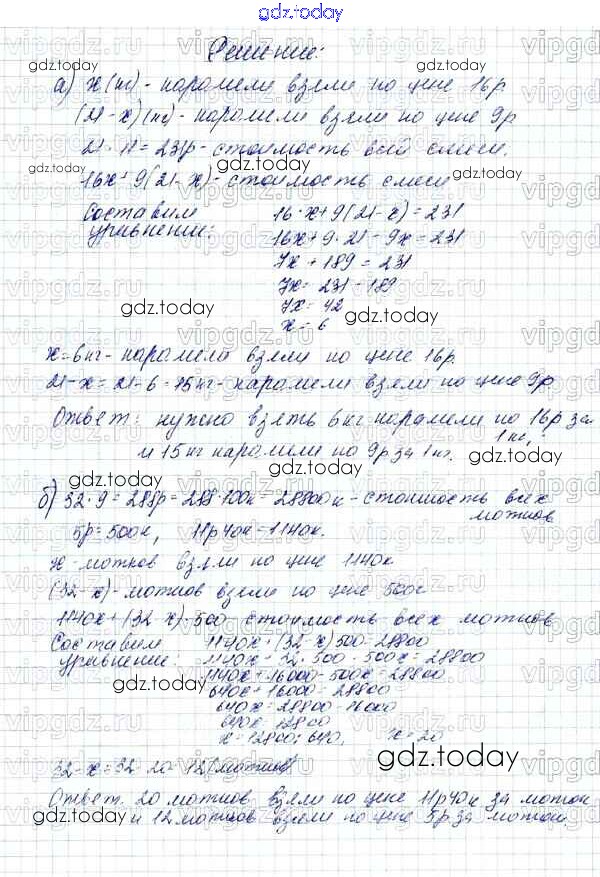 gdz.today
Решение:
а) х (кг) - карамели взяли по цене 16р
(21 - х) (кг) - карамели взяли по цене 9р
21 · 11 = 231р - стоимость всей смеси.
16х + 9(21 - х) - стоимость смеси
Составим уравнение:
16·х + 9(21 - х) = 231
16х + 9·21 - 9х = 231
7х + 189 = 231
7х = 231 - 189
7х = 42
х = 6
х = 6 кг - карамели взяли по цене 16р.
21 - х = 21 - 6 = 15 кг - карамели взяли по цене 9р
Ответ: нужно взять 6 кг карамели по 16р за
1 кг,
и 15 кг карамели по 9р за 1 кг.
б) 32 · 9 = 288р = 288·100к = 28800к - стоимость всех
мотков
5р = 500к, 11р40к = 1140к.
х - мотков взяли по цене 1140к
(32 - х) - мотков взяли по цене 500к
1140х + (32 - х)·500 стоимость всех мотков
Составим уравнение:
1140х + (32 - х)500 = 28800
1140х + 32·500 - 500х = 28800
1140х + 16000 - 500х = 28800
640х + 16000 = 28800
640х = 28800 - 16000
640х = 12800
х = 12800 : 640, х = 20
32 - х = 32 - 20 = 12 (мотков)
Ответ: 20 мотков взяли по цене 11р40к за моток
и 12 мотков взяли по цене 5р за моток
gdz.today